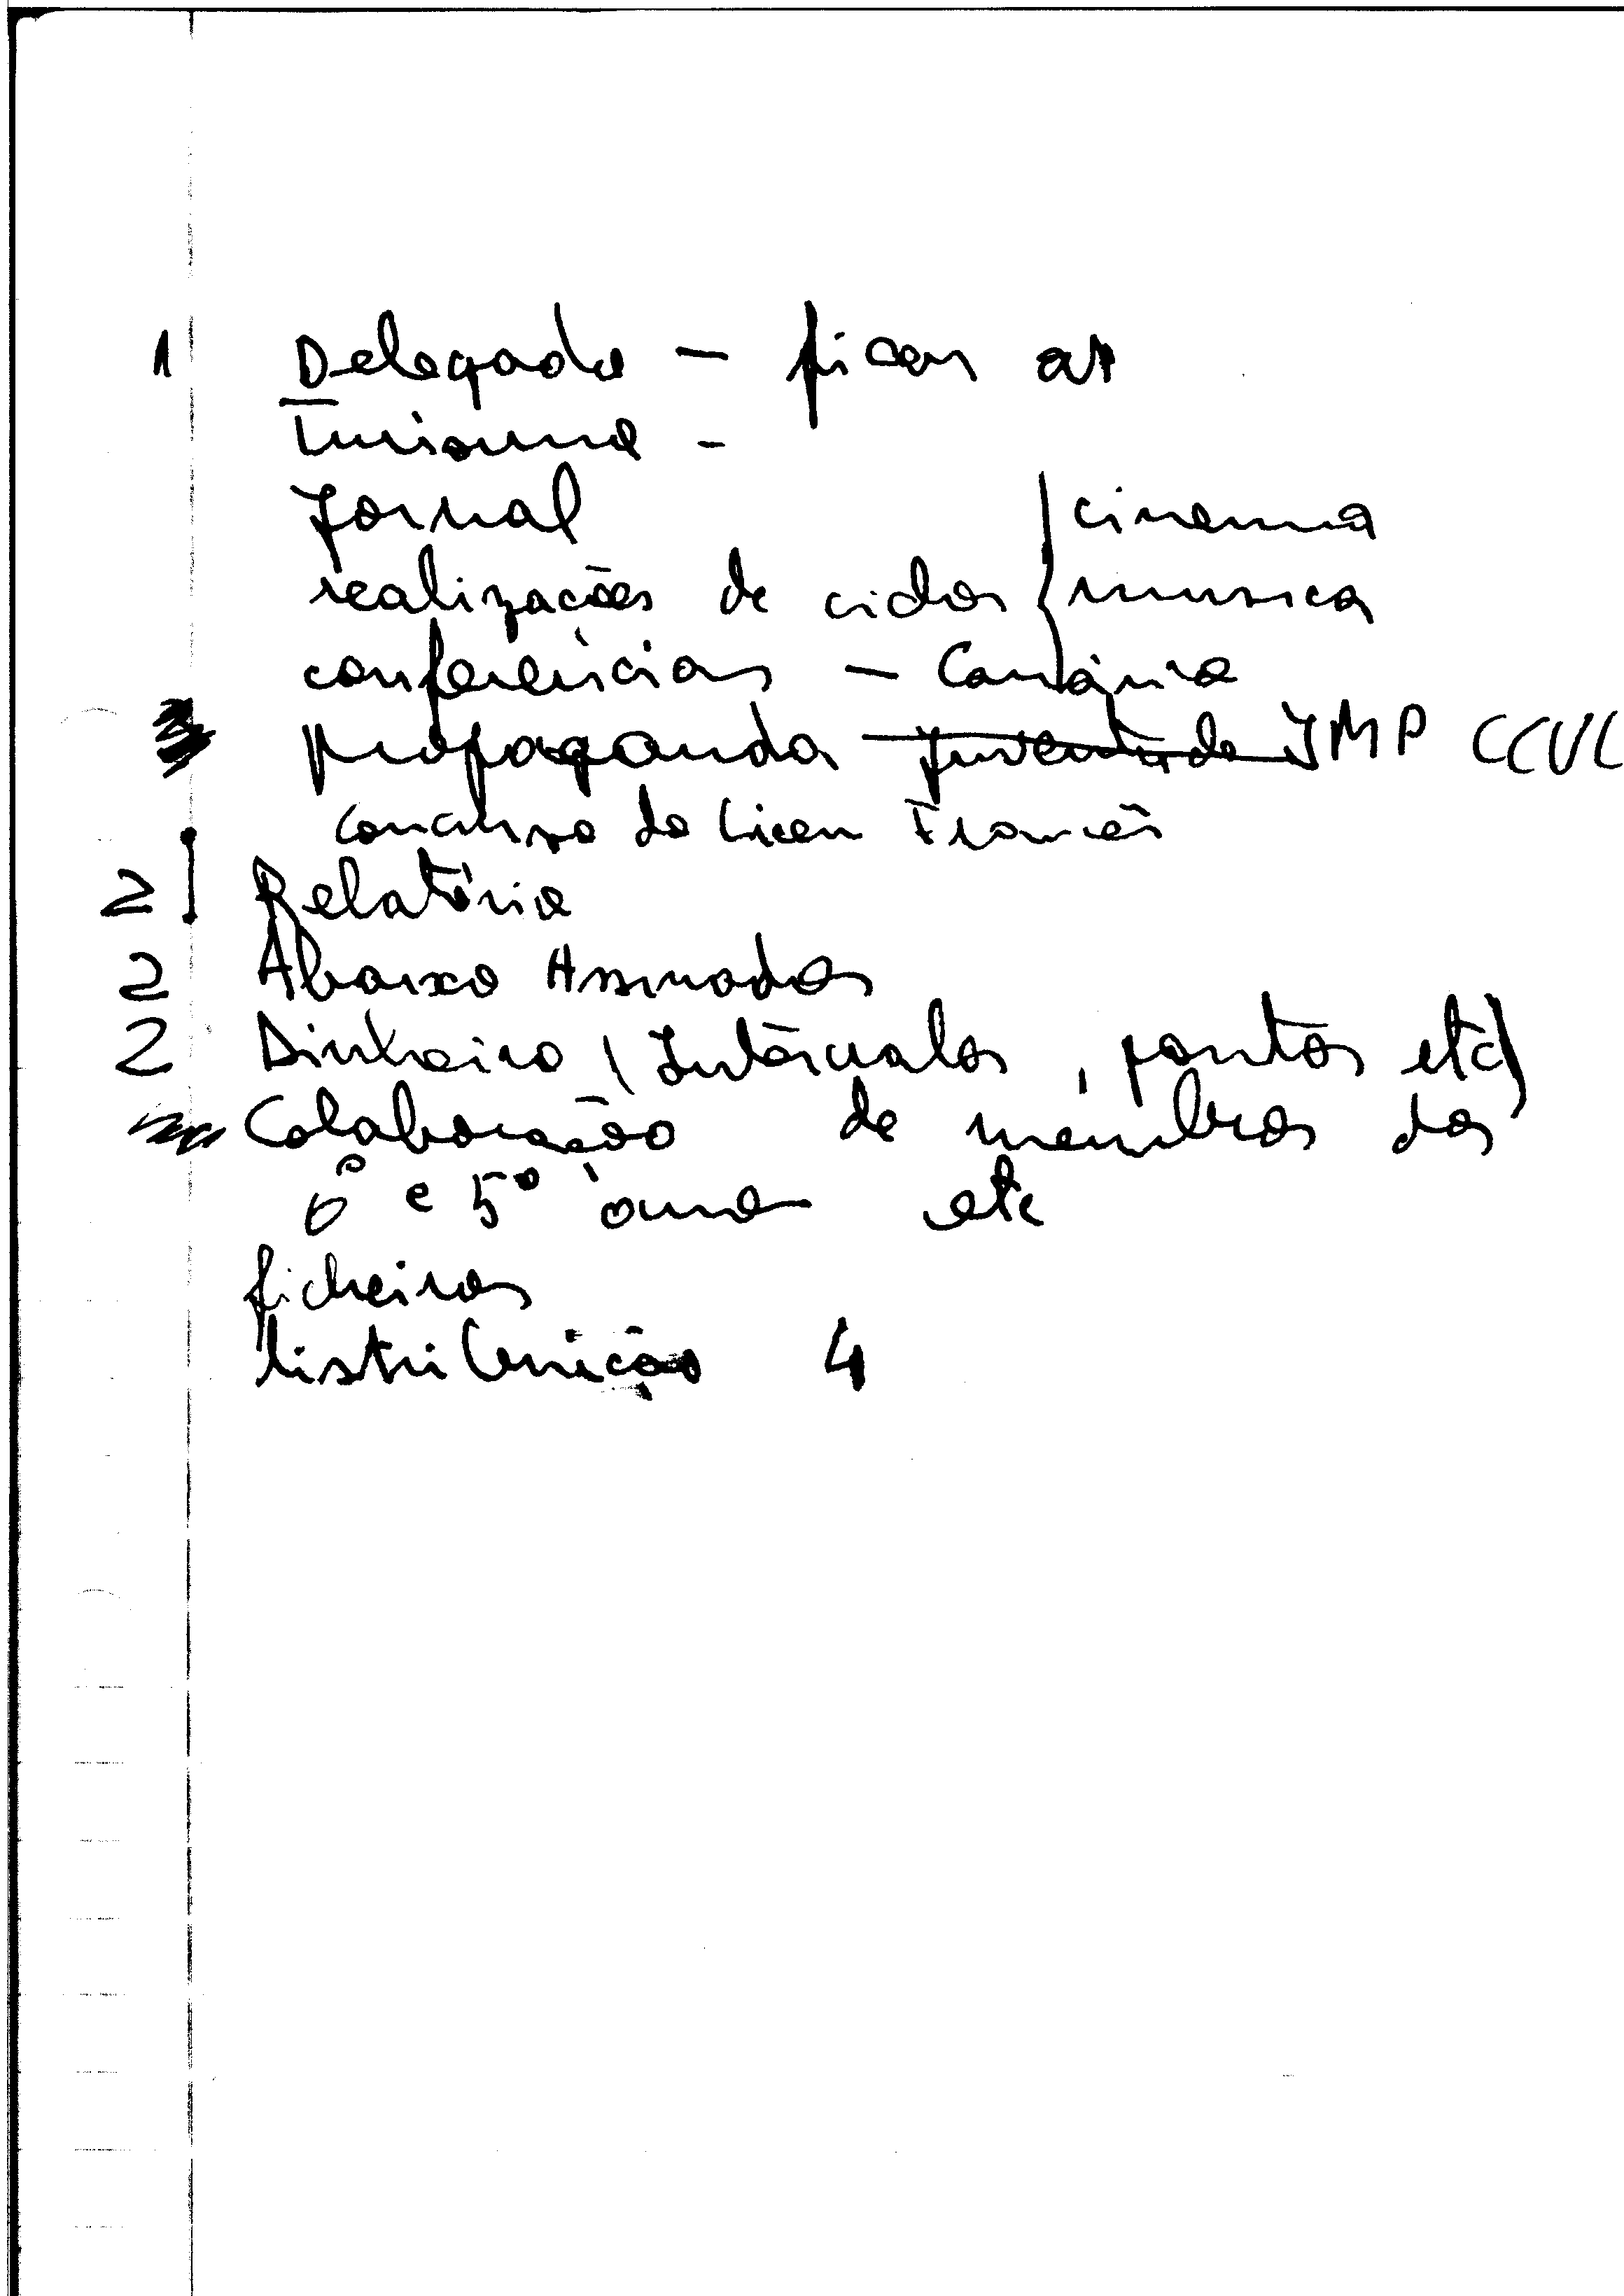 1 Delegado - ficar as
Turismo -
Jornal
realizações de ciclos { cinema
musica
conferências - Canário
propaganda Juventude JMP CCUL
Concurso do Liceu Francês
2 Relatório
2 Abaixo Assinados
2 Dinheiro (Intervalos, pontos etc)
Colaboração de membros dos
6º e 5º ano etc
ficheiros
distribuição 4